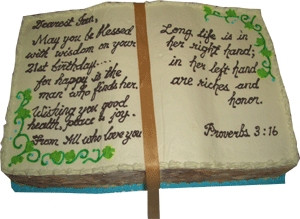 Dearest Ian,
May you be blessed
with wisdom on your
21st birthday....
for happy is the
man who finds her.
Wishing you good
health, peace & joy.
From All who love you
Long life is in
her right hand;
in her left hand
are riches and
honor.
Proverbs 3:16